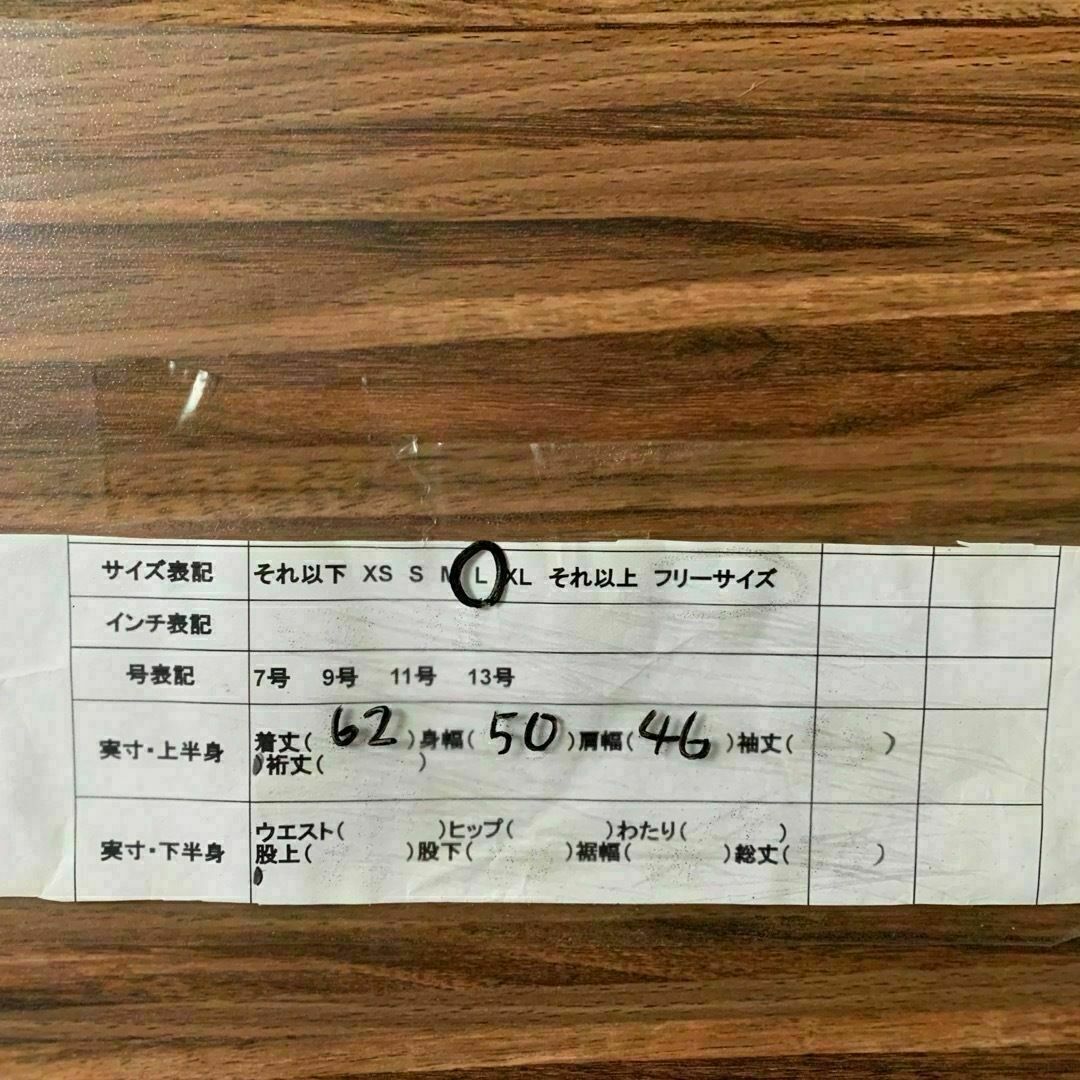 サイズ表記 それ以下 XS S M L XL それ以上 フリーサイズ
インチ表記
号表記 7号 9号 11号 13号
実寸・上半身 着丈( 62 )身幅( 50 )肩幅( 46 )袖丈( )
)裄丈( )
実寸・下半身 ウエスト( )ヒップ( )わたり( )
股上( )股下( )裾幅( )総丈( )